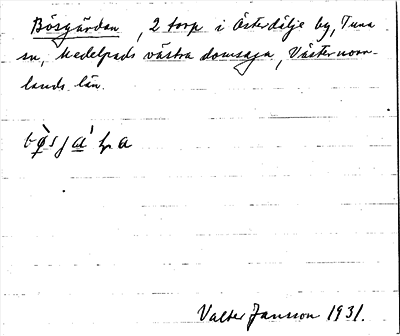 Bösgärdan, 2 torp i Österdälje by, Tuna
sn, Medelpads västra domsaga, Västernorr-
lands län.
Valter Jansson 1931.